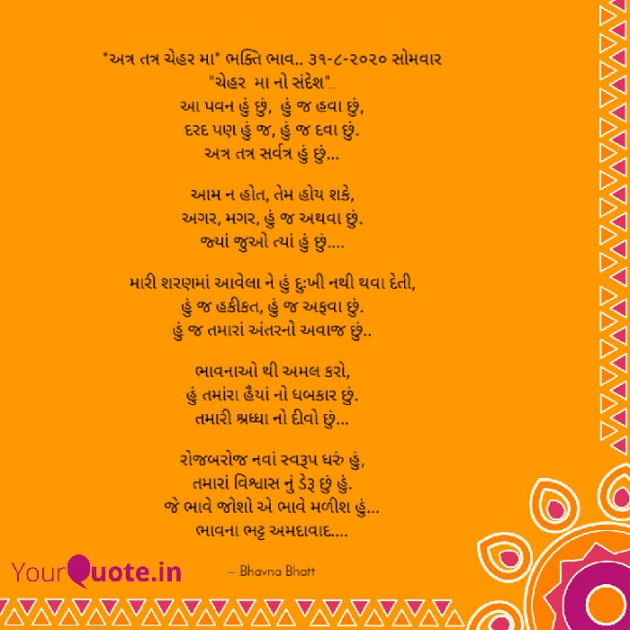 *અત્ર તત્ર ચેહર મા* ભક્તિ ભાવ.. ૩૧-૮-૨૦૨૦ સોમવાર
"ચેહર  મા નો સંદેશ"..
આ પવન હું છું,  હું જ હવા છું,
દરદ પણ હું જ, હું જ દવા છું.
અત્ર તત્ર સર્વત્ર હું છું...
આમ ન હોત, તેમ હોય શકે,
અગર, મગર, હું જ અથવા છું.
જ્યાં જુઓ ત્યાં હું છું....
મારી શરણમાં આવેલા ને હું દુઃખી નથી થવા દેતી,
હું જ હકીકત, હું જ અફવા છું.
હું જ તમારાં અંતરનો અવાજ છું..
ભાવનાઓ થી અમલ કરો,
હું તમાંરા હૈયાં નો ધબકાર છું.
તમારી શ્રધ્ધા નો દીવો છું...
રોજબરોજ નવાં સ્વરૂપ ધરું હું,
તમારાં વિશ્વાસ નું ડેરૂ છું હું.
જે ભાવે જોશો એ ભાવે મળીશ હું...
ભાવના ભટ્ટ અમદાવાદ....
YourQuote.in
– Bhavna Bhatt